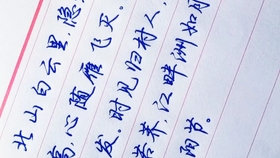 北山白云里，隐
高，心随雁飞灭。
发。时见归村人，
荠，江畔洲如月
阳节。